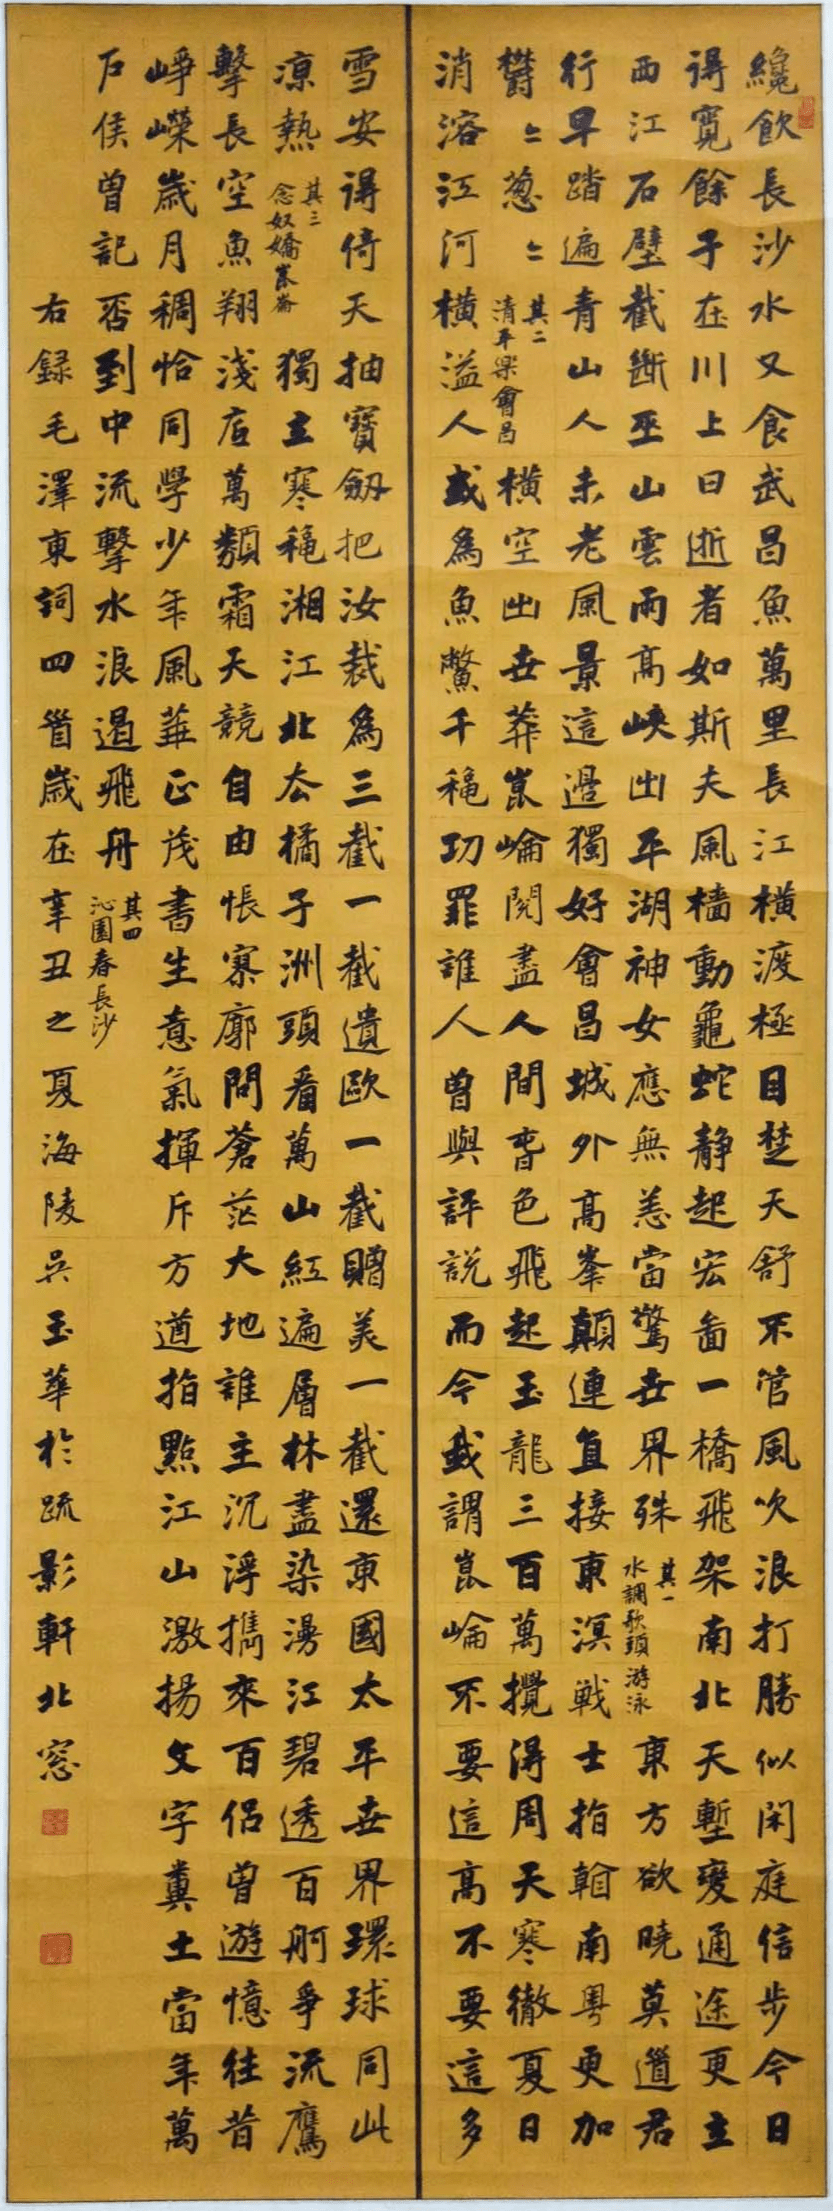 纔飲長沙水又食武昌魚萬里長江橫渡極目楚天舒不管風吹浪打勝似閑庭信步今日
得寬餘子在川上曰逝者如斯夫風檣動龜蛇静起宏啚一橋飛架南北天塹變通途更立
西江石壁截斷巫山雲雨高峽出平湖神女應無恙當驚世界殊其一水調歌頭游泳東方欲曉莫道君
行早踏遍青山人未老風景這邊獨好會昌城外高峯顛連直接東溟戰士指看南粵更加
鬱々葱々其二清平樂會昌橫空出世莽崑崙閱盡人間春色飛起玉龍三百萬攪得周天寒徹夏日
消溶江河橫溢人或爲魚鱉千秋功罪誰人曾與評説而今我謂崑崙不要這高不要這多
雪安得倚天抽寶劍把汝裁爲三截一截遺歐一截贈美一截還東國太平世界環球同此
凉熱其三念奴嬌崑崙獨立寒秋湘江北去橘子洲頭看萬山紅遍層林盡染漫江碧透百舸爭流鷹
擊長空魚翔淺底萬類霜天競自由悵寥廓問蒼茫大地誰主沉浮攜來百侶曾遊憶往昔
崢嶸歲月稠恰同學少年風華正茂書生意氣揮斥方遒指點江山激揚文字糞土當年萬
戶侯曾記否到中流擊水浪遏飛舟其四沁園春長沙
右録毛澤東詞四首歲在辛丑之夏海陵吳玉華於疏影軒北窓